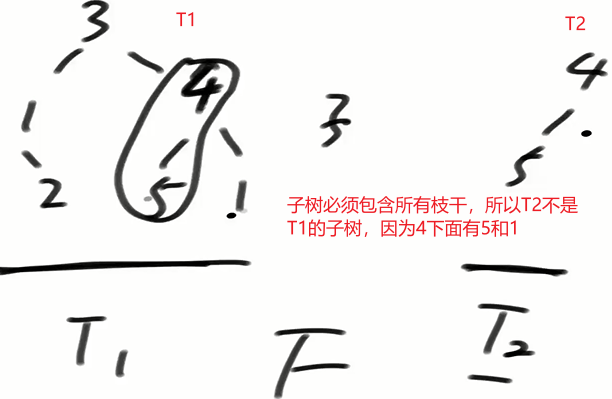 3 T1 T2
4 4
1 5
2 5 1
子树必须包含所有枝干，所以T2不是
T1的子树，因为4下面有5和1
T1 F T2